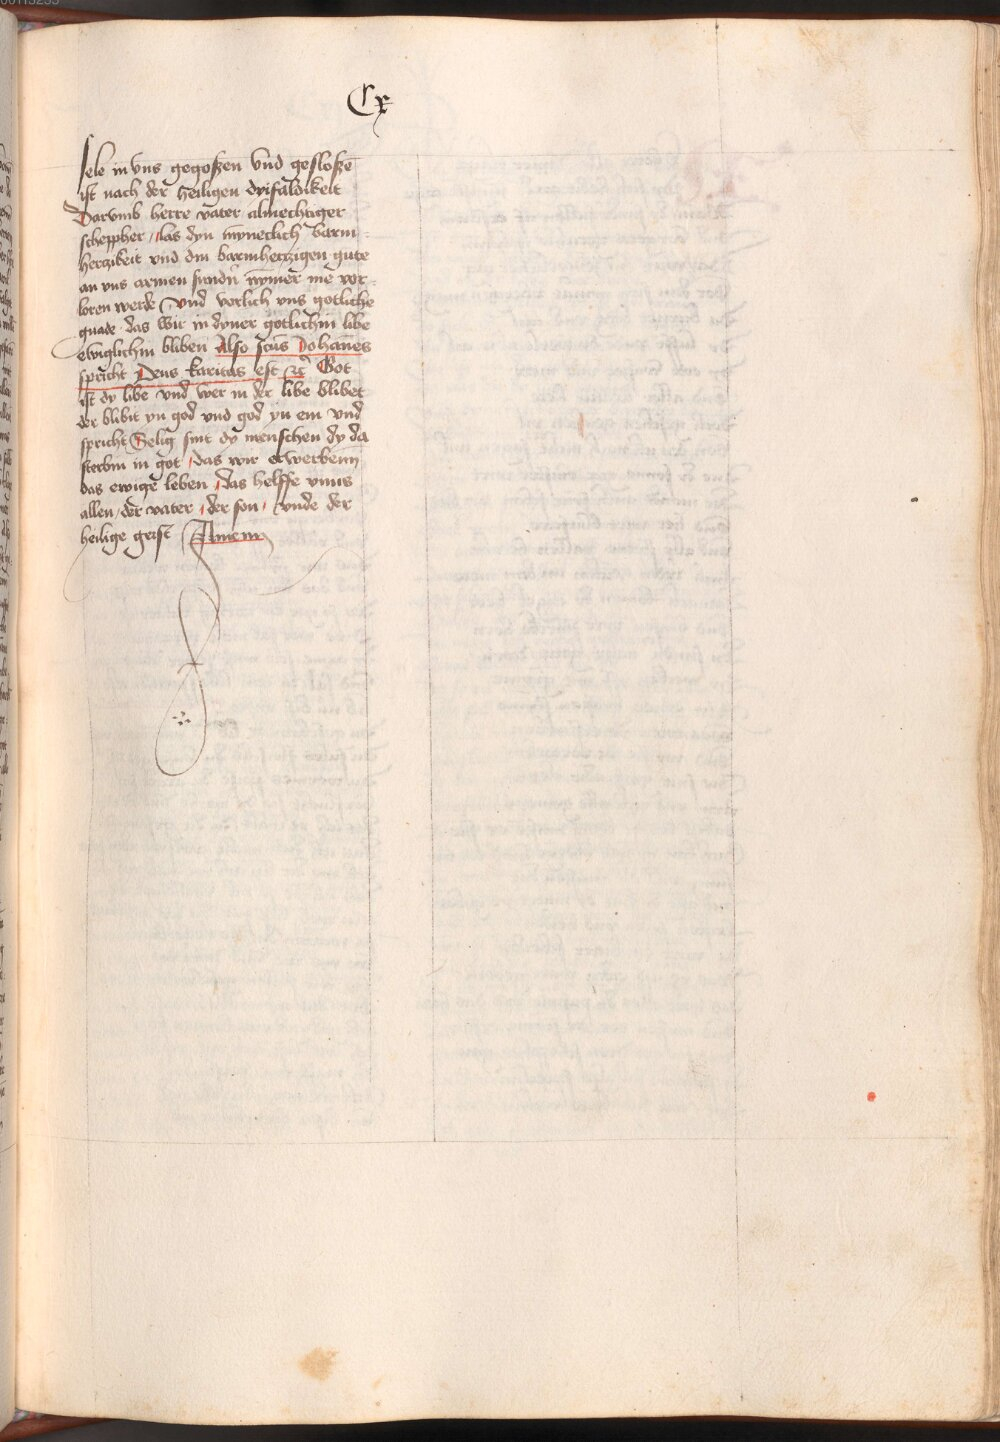 Cx
sele in vns gegoszen vnd geslosze
ist nach der heiligen dryfaldikeit
Darvmb herre vater almechtiger
scheppher / las dyn mynneclich barm-
hertzikeit vnd din barmhertzigen gute
an vns armen sundn nymer me vor-
loren werde / Vnd vorlich vns gotliche
gnade das wir in dyner gotlichin libe
ewiglichin bliben Also scūs Johanēs
spricht Deus karitas est ꝛc̄ Got
ist dy libe vnd wer in der libe blibet
der blibit yn god vnd god yn em vnd
spricht Selig sint dy menschen dy da
sterbin in got / das wir erwerbenn
das ewige leben / das helffe vnns
allen / der vater / der son / vnde der
heilige geist Amenn